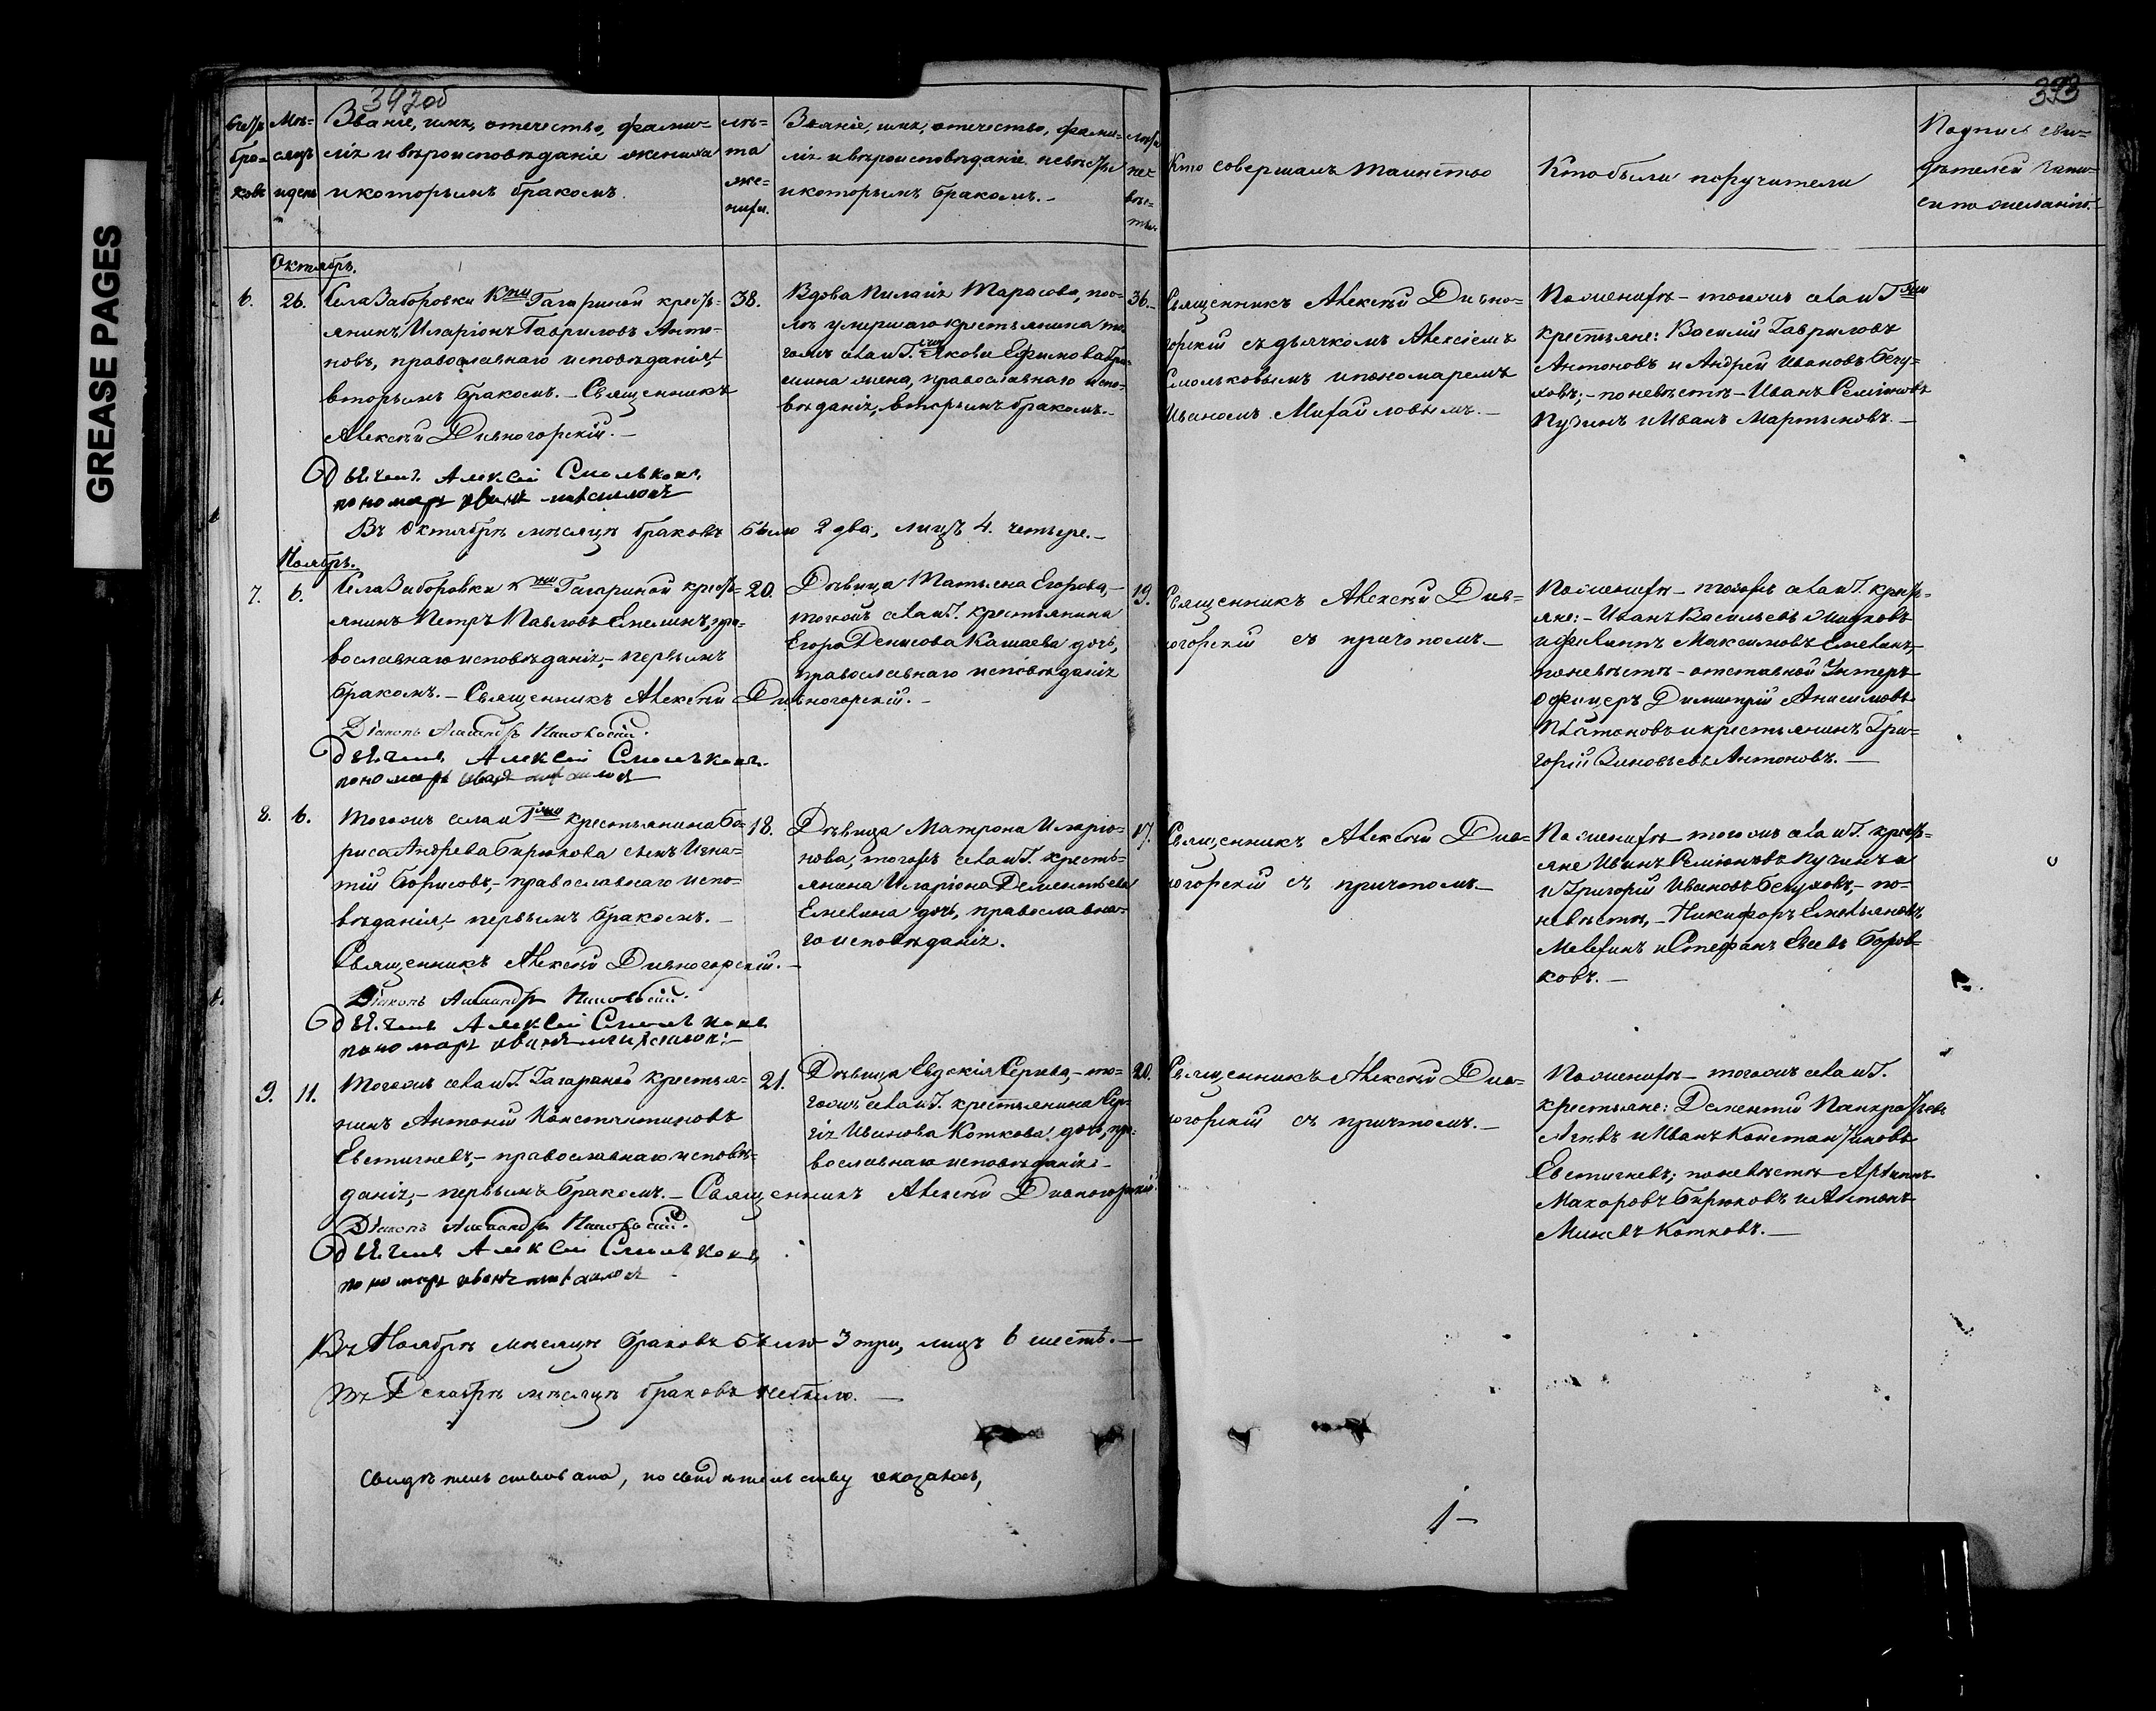 GREASE PAGES
392об
393
Счетъ бра= ковъ
Мѣ= сяцъ и день
Званіе, имя, отечество, фами=
лія и вѣроисповѣданіе жениха
и которымъ бракомъ.
лѣ= та же= ниха.
Званіе, имя, отечество, фами=
лія и вѣроисповѣданіе невѣсты
и которымъ бракомъ.-
лѣта не= вѣс= ты.
Кто совершалъ таинство
Кто были поручители
Подпись сви=
дѣтелей запи=
си по желанію.
Октябрь.
6.
26.
Села Заборовки Кжи Гагариной кресть=
янинъ Иларіонъ Гавриловъ Анто=
новъ, православнаго исповѣданія,
вторымъ бракомъ. - Священникъ
Алексѣй Дивногорскій. -
Дьячекъ Алексей Смольковъ
пономарь Иванъ Михаиловъ
38.
Вдова Пилагія Тарасова, пос=
лѣ умершаго крестьянина то=
гожъ села и Г. Якова Ефимова
жена, православнаго испо=
вѣданія, вторымъ бракомъ.-
36.
Священникъ Алексѣй Дивно=
горскій съ дьячкомъ Алексіемъ
Смольковымъ и пономаремъ
Иваномъ Михайловымъ. -
По женихѣ - тогожъ села и Гжи
крестьяне: Василій Гавриловъ
Антоновъ и Андрей Ивановъ Бегу=
ховъ; - по невѣстѣ - Иванъ Семіоновъ
Пучинъ и Иванъ Мартыновъ. -
Въ Октябрѣ мѣсяцѣ браковъ было 2 два, лицъ 4. четыре. -
Ноябрь.
7.
6.
Села Заборовки Кжи Гагариной кресть=
янинъ Петръ Павловъ Емелинъ, пра=
вославнаго исповѣданія, - первымъ
бракомъ. - Священникъ Алексѣй Дивногорскій. -
Діаконъ Александръ
Дьячекъ Алексей Смольковъ
пономарь Иванъ Михаиловъ
20.
Дѣвица Татьяна Егорова, -
тогожъ села и Г. крестьянина
Егора Денисова Кашаева дочь,
православнаго исповѣданія
19.
Священникъ Алексѣй Див=
ногорскій съ причтомъ. -
По женихѣ - тогожъ села и Г. кресть=
яне: - Иванъ Васильевъ
и Филиппъ Максимовъ Емелинъ, -
по невѣстѣ - отставной Унтеръ
офицеръ Димитрій Анисимовъ
Платоновъ и крестьянинъ Гри=
горій Зиновьевъ Антоновъ. -
8.
6.
Тогожъ села и Гжи крестьянина Бо=
риса Андрѣева Бирюкова сынъ Игна=
тій Борисовъ, - православнаго испо=
вѣданія, - первымъ бракомъ. -
Священникъ Алексѣй Дивногорскій. -
Діаконъ Александръ
Дьячекъ Алексей Смольковъ
пономарь Иванъ Михаиловъ
18.
Дѣвица Матрона Иларіо=
нова, тогожъ села и Г. кресть=
янина Иларіона Дементьева
Емелина дочь, православна=
го исповѣданія.
17.
Священникъ Алексѣй Див=
ногорскій съ причтомъ. -
По женихѣ - тогожъ села и Г. кресть=
яне Иванъ Семіоновъ Пучинъ и
и Григорій Ивановъ Бегуховъ, - по
невѣстѣ, - Никифоръ Емельяновъ
Мелехинъ и Стефанъ Евсевъ Боров=
ковъ. -
9.
11.
Тогожъ села и Г. Гагариной крестья=
нинъ Антоній Константиновъ
Евстигневъ, - православнаго исповѣ=
данія, - первымъ бракомъ. - Священникъ Алексѣй Дивногорскій.
Діаконъ Александръ
Дьячекъ Алексей Смольковъ
пономарь Иванъ Михаиловъ
21.
Дѣвица Евдокія Сергѣева, - то=
гожъ села и Г. крестьянина Сер=
гія Иванова Коткова дочь, пра=
вославнаго исповѣданія -
20.
Священникъ Алексѣй Див=
ногорскій съ причтомъ. -
По женихѣ - тогожъ села и Г.
крестьяне: Дементій Панкратьевъ
и Иванъ Константиновъ
Евстигневъ; по невѣстѣ - Архипъ
Макаровъ Бирюковъ и Антонъ
Минѣевъ Котковъ. -
Въ Ноябрѣ мѣсяцѣ браковъ было 3 три, лицъ 6 шесть. -
Въ Декабрѣ мѣсяцѣ браковъ небыло. -
Свидѣтельствована, по свидѣтельству оказалось,
1 -